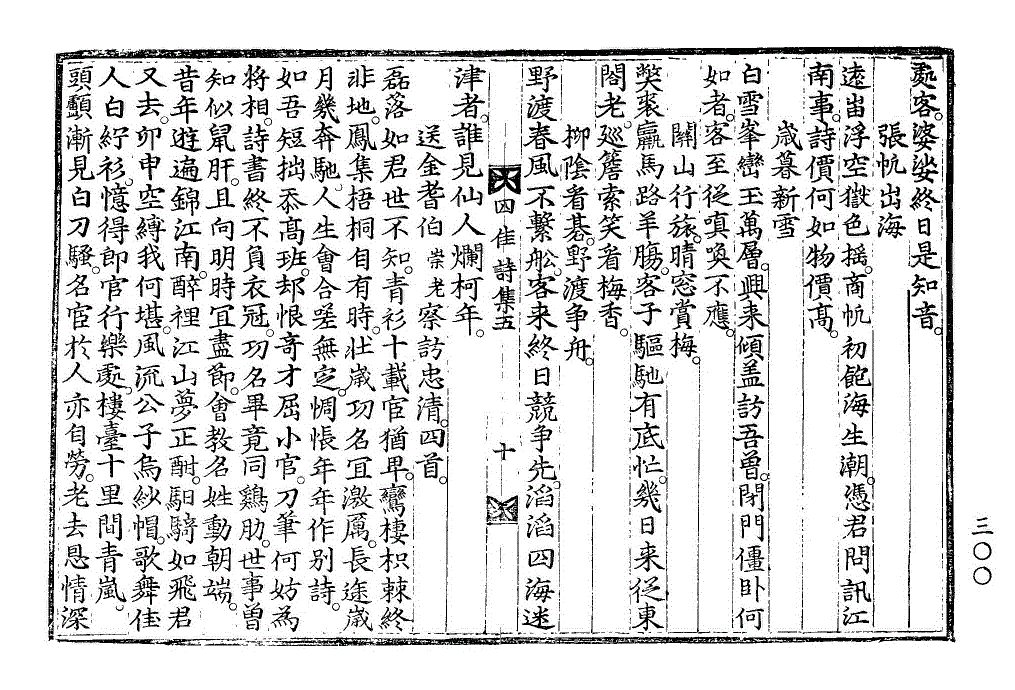 處客。婆娑終日是知音。
張帆出海
遠峀浮空嶽色搖。商帆初飽海生潮。憑君問訊江
南事。詩價何如物價高。
歲暮新雪
白雪峯巒玉萬層。興来傾盖訪吾曾。閉門僵卧何
如者。客至従嗔喚不應。
關山行旅。晴窓賞梅。
獘裘羸馬路羊膓。客子驅馳有底忙。幾日来従東
閤老。廵簷索笑看梅香。
柳陰看碁。野渡争舟。
野渡春風不繫舩。客来終日競争先。滔滔四海迷
四佳詩集五
十
津者。誰見仙人爛柯年。
送金耆伯崇老察訪忠清。四首。
磊落如君世不知。青衫十載官猶卑。鸞棲枳棘終
非地。鳳集梧桐自有時。壮歲功名冝激厲。長途歲
月幾奔馳。人生會合嗟無定。惆悵年年作别詩。
如吾短拙忝髙班。却恨奇才屈小官。刀筆何妨為
将相。詩書終不負衣冠。功名畢竟同鷄肋。世事曽
知似鼠肝。且向明時冝盡節。會教名姓動朝端。
昔年遊遍錦江南。醉裡江山夢正酣。馹騎如飛君
又去。卯申空縛我何堪。風流公子烏紗帽。歌舞佳
人白紵衫。憶得即官行樂處。樓臺十里間青嵐。
頭顱漸見白刁騷。名宦於人亦自勞。老去悬情深
三〇〇